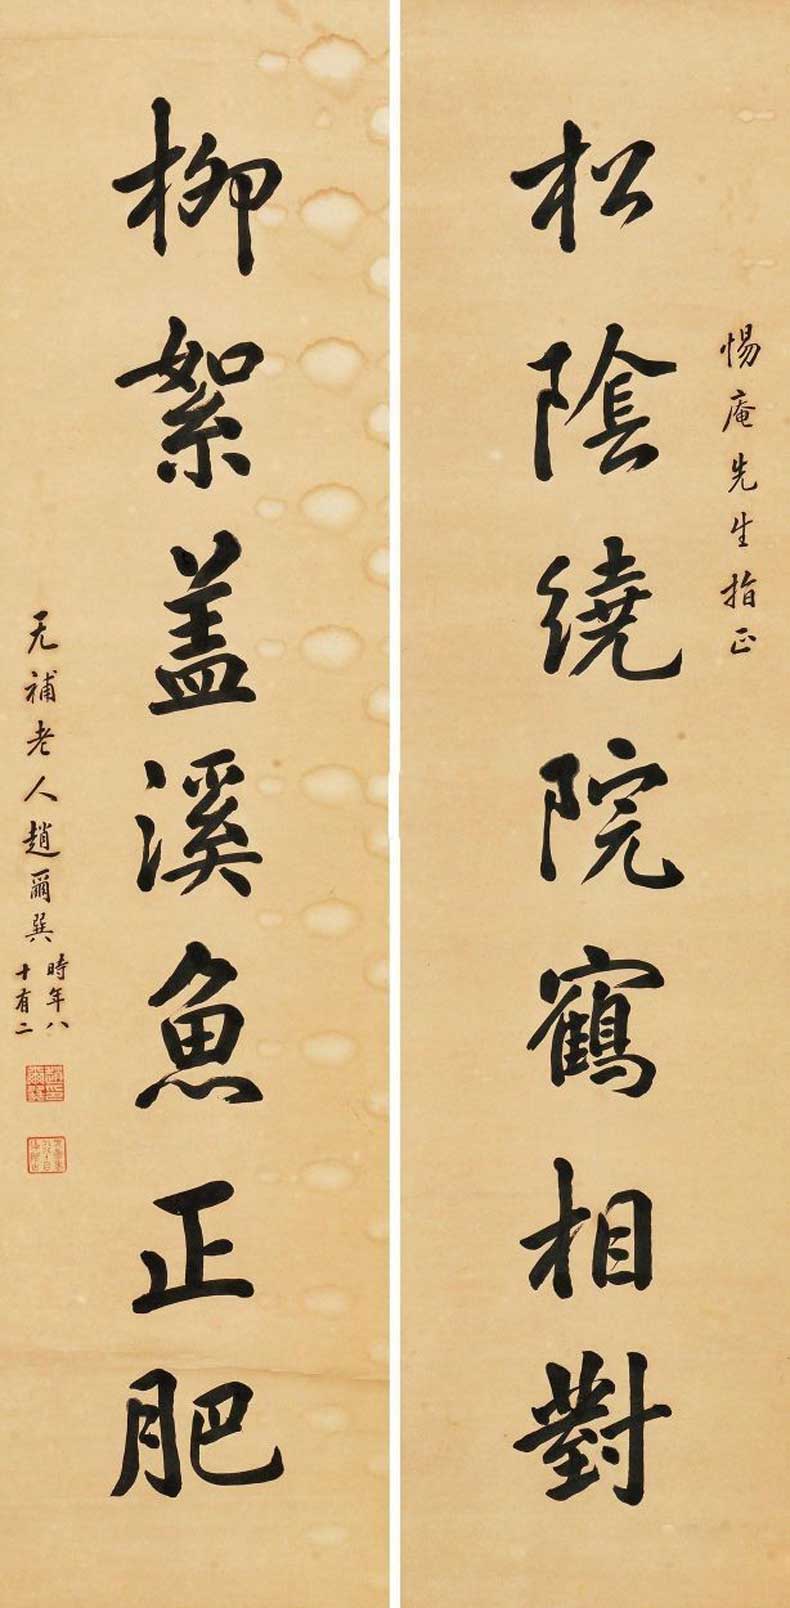 惕庵先生指正
松陰繞院鶴相對
柳絮蓋溪魚正肥
无補老人趙爾巽時年八
十有二